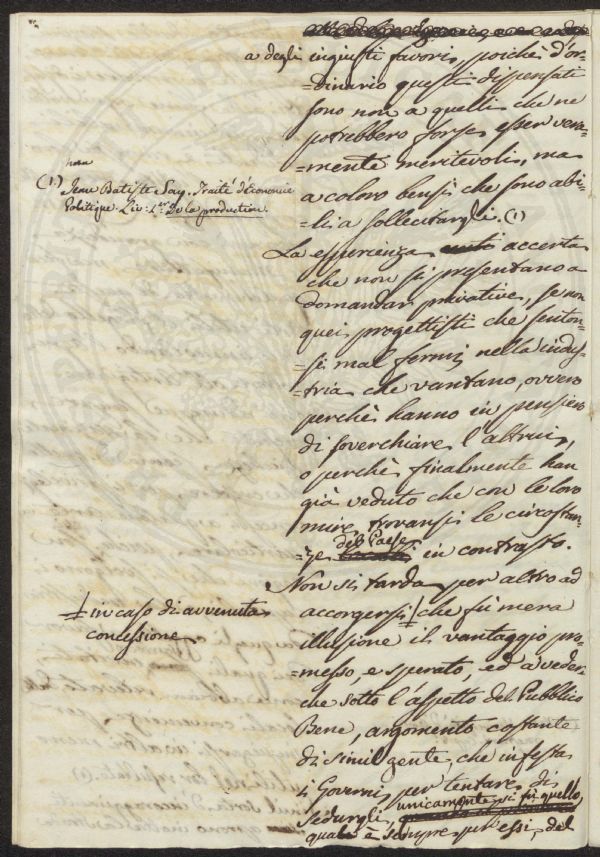 a degli ingiusti favori, poichè d'or-
=dinario questi dispensati
sono non a quelli che ne
potrebbero forse esser vera-
=mente meritevoli, ma
a coloro bensì che sono abi-
=li a sollecitargli. (1)
(1) Jean Batiste Say. Traité d'Economie
Politique. Liv: 1.er De la production.
La esperienza accerta
che non si presentano a
domandar privative, se non
quei progettisti che senton-
=si mal fermi nella indus-
=tria che vantano, ovvero
perchè hanno in pensiero
di soverchiare l'altrui,
o perchè finalmente han
già veduto che con le loro
mire trovansi le circostan-
=ze del Paese in contrasto.
Non si tarda per altro ad
accorgersi ǂ che fù mera
ǂ in caso di avvenuta
concessione
illusione il vantaggio pro-
=messo, e sperato, ed a veder
che sotto l'aspetto del Pubblico
Bene, argomento costante
di simil gente, che infesta
i Governi per tentare di
sedurgli, unicamente si fù quello,
quale è sempre per essi, del